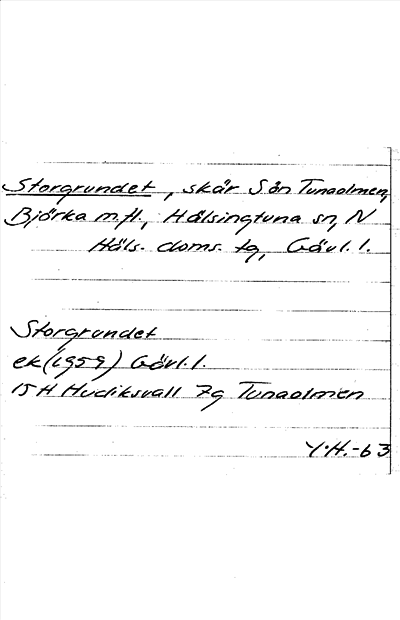 Storgrundet, skär S ön Tunaolmen,
Björka m.fl., Hälsingtuna sn, N
Häls. doms. tg, Gävl. l.
Storgrundet
ek (1959) Gävl. l.
15 H Hudiksvall 7g Tunaolmen
Y.H.-63